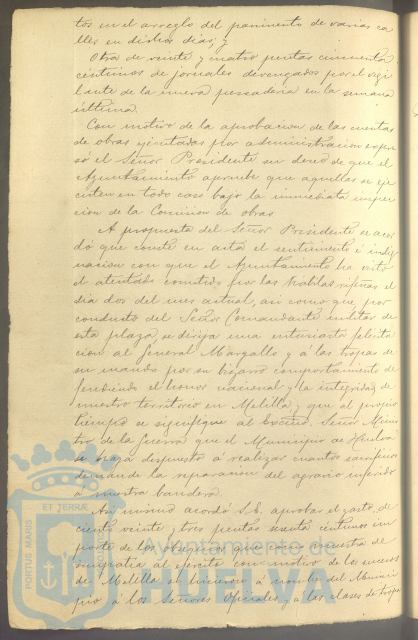 tos en el arreglo del pavimento de varias ca
lles en dichos dias; y
Otra de veinte y cuatro pesetas cincuenta
centimos de jornales devengados por el vigi
lante de la nueva pescaderia en la semana
última.
Con motivo de la aprobacion de las cuentas
de obras ejecutadas por administracion expre
só el Señor Presidente su deseo de que el
Ayuntamiento apruebe que aquellas se eje
cuten en todo caso bajo la inmediata inspec
cion de la Comision de obras.
A propuesta del Señor Presidente se acor
dó que conste en acta el sentimiento é indig
nacion con que el Ayuntamiento ha visto
el atentado cometido por las Kabilas rifeñas el
dia dos del mes actual, asi como que por
conducto del Señor Comandante militar de
esta plaza, se dirija una entusiasta felicita
cion al General Margallo y á las tropas de
su mando por su bizarro comportamiento de
fendiendo el honor nacional y la integridad de
nuestro territorio en Melilla, y que al propio
tiempo se signifique al Excmo. Señor Minis
tro de la Guerra que el Municipio de Huelva
se haya dispuesto á realizar cuantos sacrificios
demande la reparacion del agravio inferido
á nuestra bandera.
Asi mismo acordó S.E. aprobar el gasto de
ciento veinte y tres pesetas setenta centimos im
porte de los obsequios que como muestra de
simpatia al ejército con motivo de los sucesos
de Melilla se hicieron á nombre del Munici
pio á los Señores Oficiales y á las clases de tropa
PORTUS MARIS
ET TERRAE
Ayuntamiento de
HUELVA